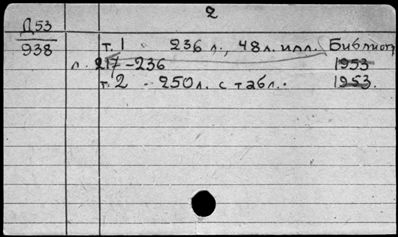 2
Д53
938
т. 1 - 236 л., 48 л. илл. Библиогр
л. 217-236 1953
т. 2 - 250 л. с табл. 1953.